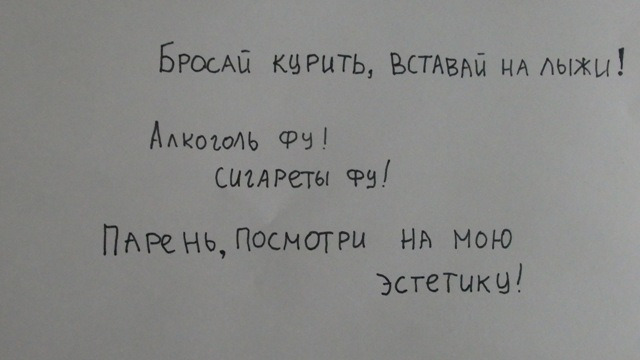 Бросай курить, вставай на лыжи!
Алкоголь фу!
сигареты фу!
Парень, посмотри на мою
эстетику!